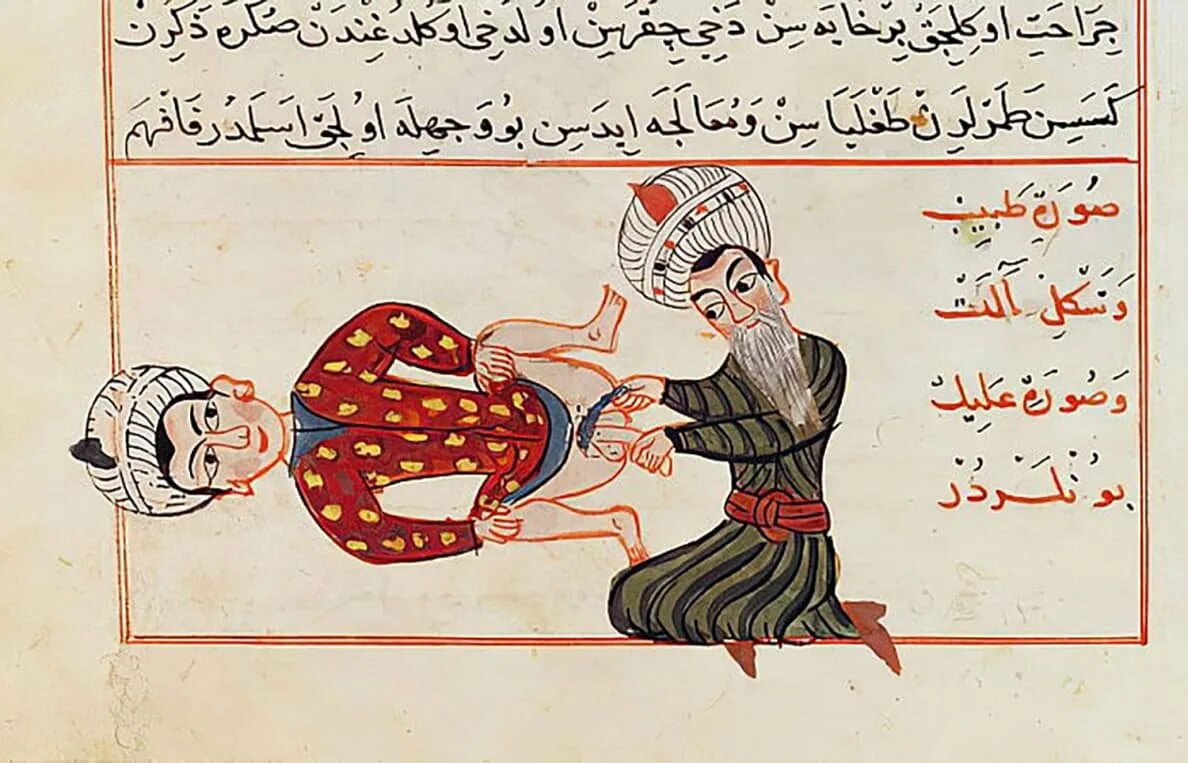 جراحت اوكلجق برخايه سن دخي چقرسن اولدخي اوكلدغندن صكره ذكرن
كسسن طمرلرن طغلياسن ومعالجه ايدسن بو وجهله اولجق اسلمدر فافهم
صورة طبيب
وشكل آلت
وصورة عليل
بونلردر